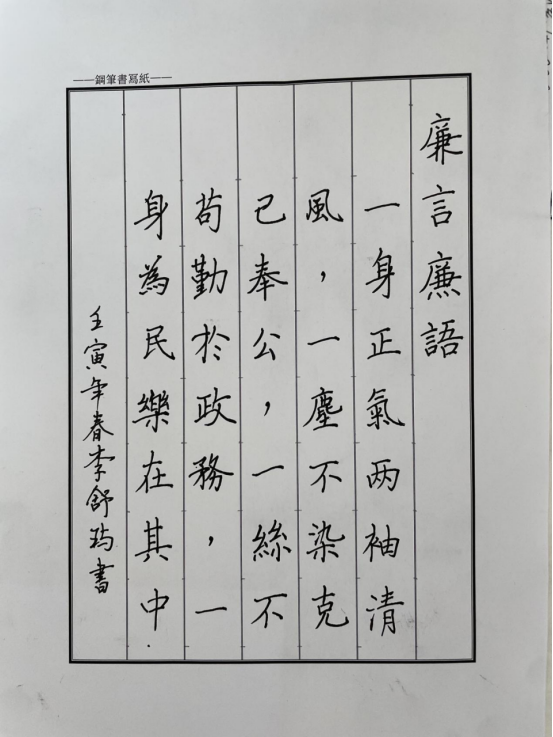 ——鋼筆書寫紙——
廉言廉語
一身正氣两袖清
風，一塵不染克
己奉公，一絲不
苟勤於政務，一
身為民樂在其中.
壬寅年春李舒筠書